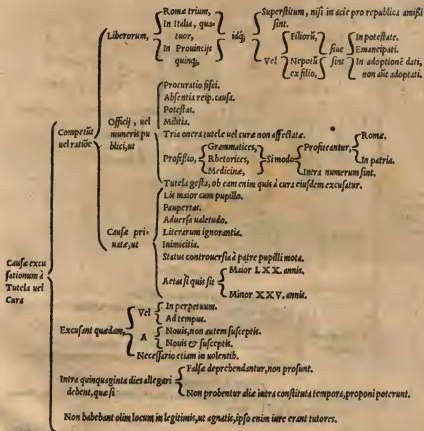 Romæ trium,
In Italia, quatuor,
In Prouincijs quinq;
Liberorum,
idq;
Superstitum, nisi in acie pro republica amissi sint.
Vel
Filiorū,
Nepotū ex filio,
siue sint
In potestate.
Emancipati.
In adoptionē dati, non aūt adoptati.
Competūt uel ratiōe
Officij, uel muneris publici, ut
Procuratio fisci.
Absentia reip. causa.
Potestas.
Militia.
Tria onera tutelæ uel curæ non affectatæ.
Professio,
Grammatices,
Rhetorices,
Medicinæ,
Si modo
Profiteantur,
Romæ.
In patria.
Intra numerum sint.
Tutela gesta, ob eam enim quis à cura eiusdem excusatur.
Causæ priuatæ, ut
Lis maior cum pupillo.
Paupertas.
Aduersa ualetudo.
Literarum ignorantia.
Inimicitia.
Status controuersia à patre pupilli mota.
Aetas si quis sit
Maior LXX. annis.
Minor XXV. annis.
Causæ excusationum à Tutela uel Cura
Excusant quædam,
Vel
In perpetuum.
Ad tempus.
A
Nouis, non autem susceptis.
Nouis & susceptis.
Necessario etiam in uolentib.
Intra quinquaginta dies allegari debent, quæ si
Falsæ deprehendantur, non prosunt.
Non probentur aliæ intra constituta tempora, proponi poterunt.
Non habebant olim locum in legitimis, ut agnatis, ipso enim iure erant tutores.